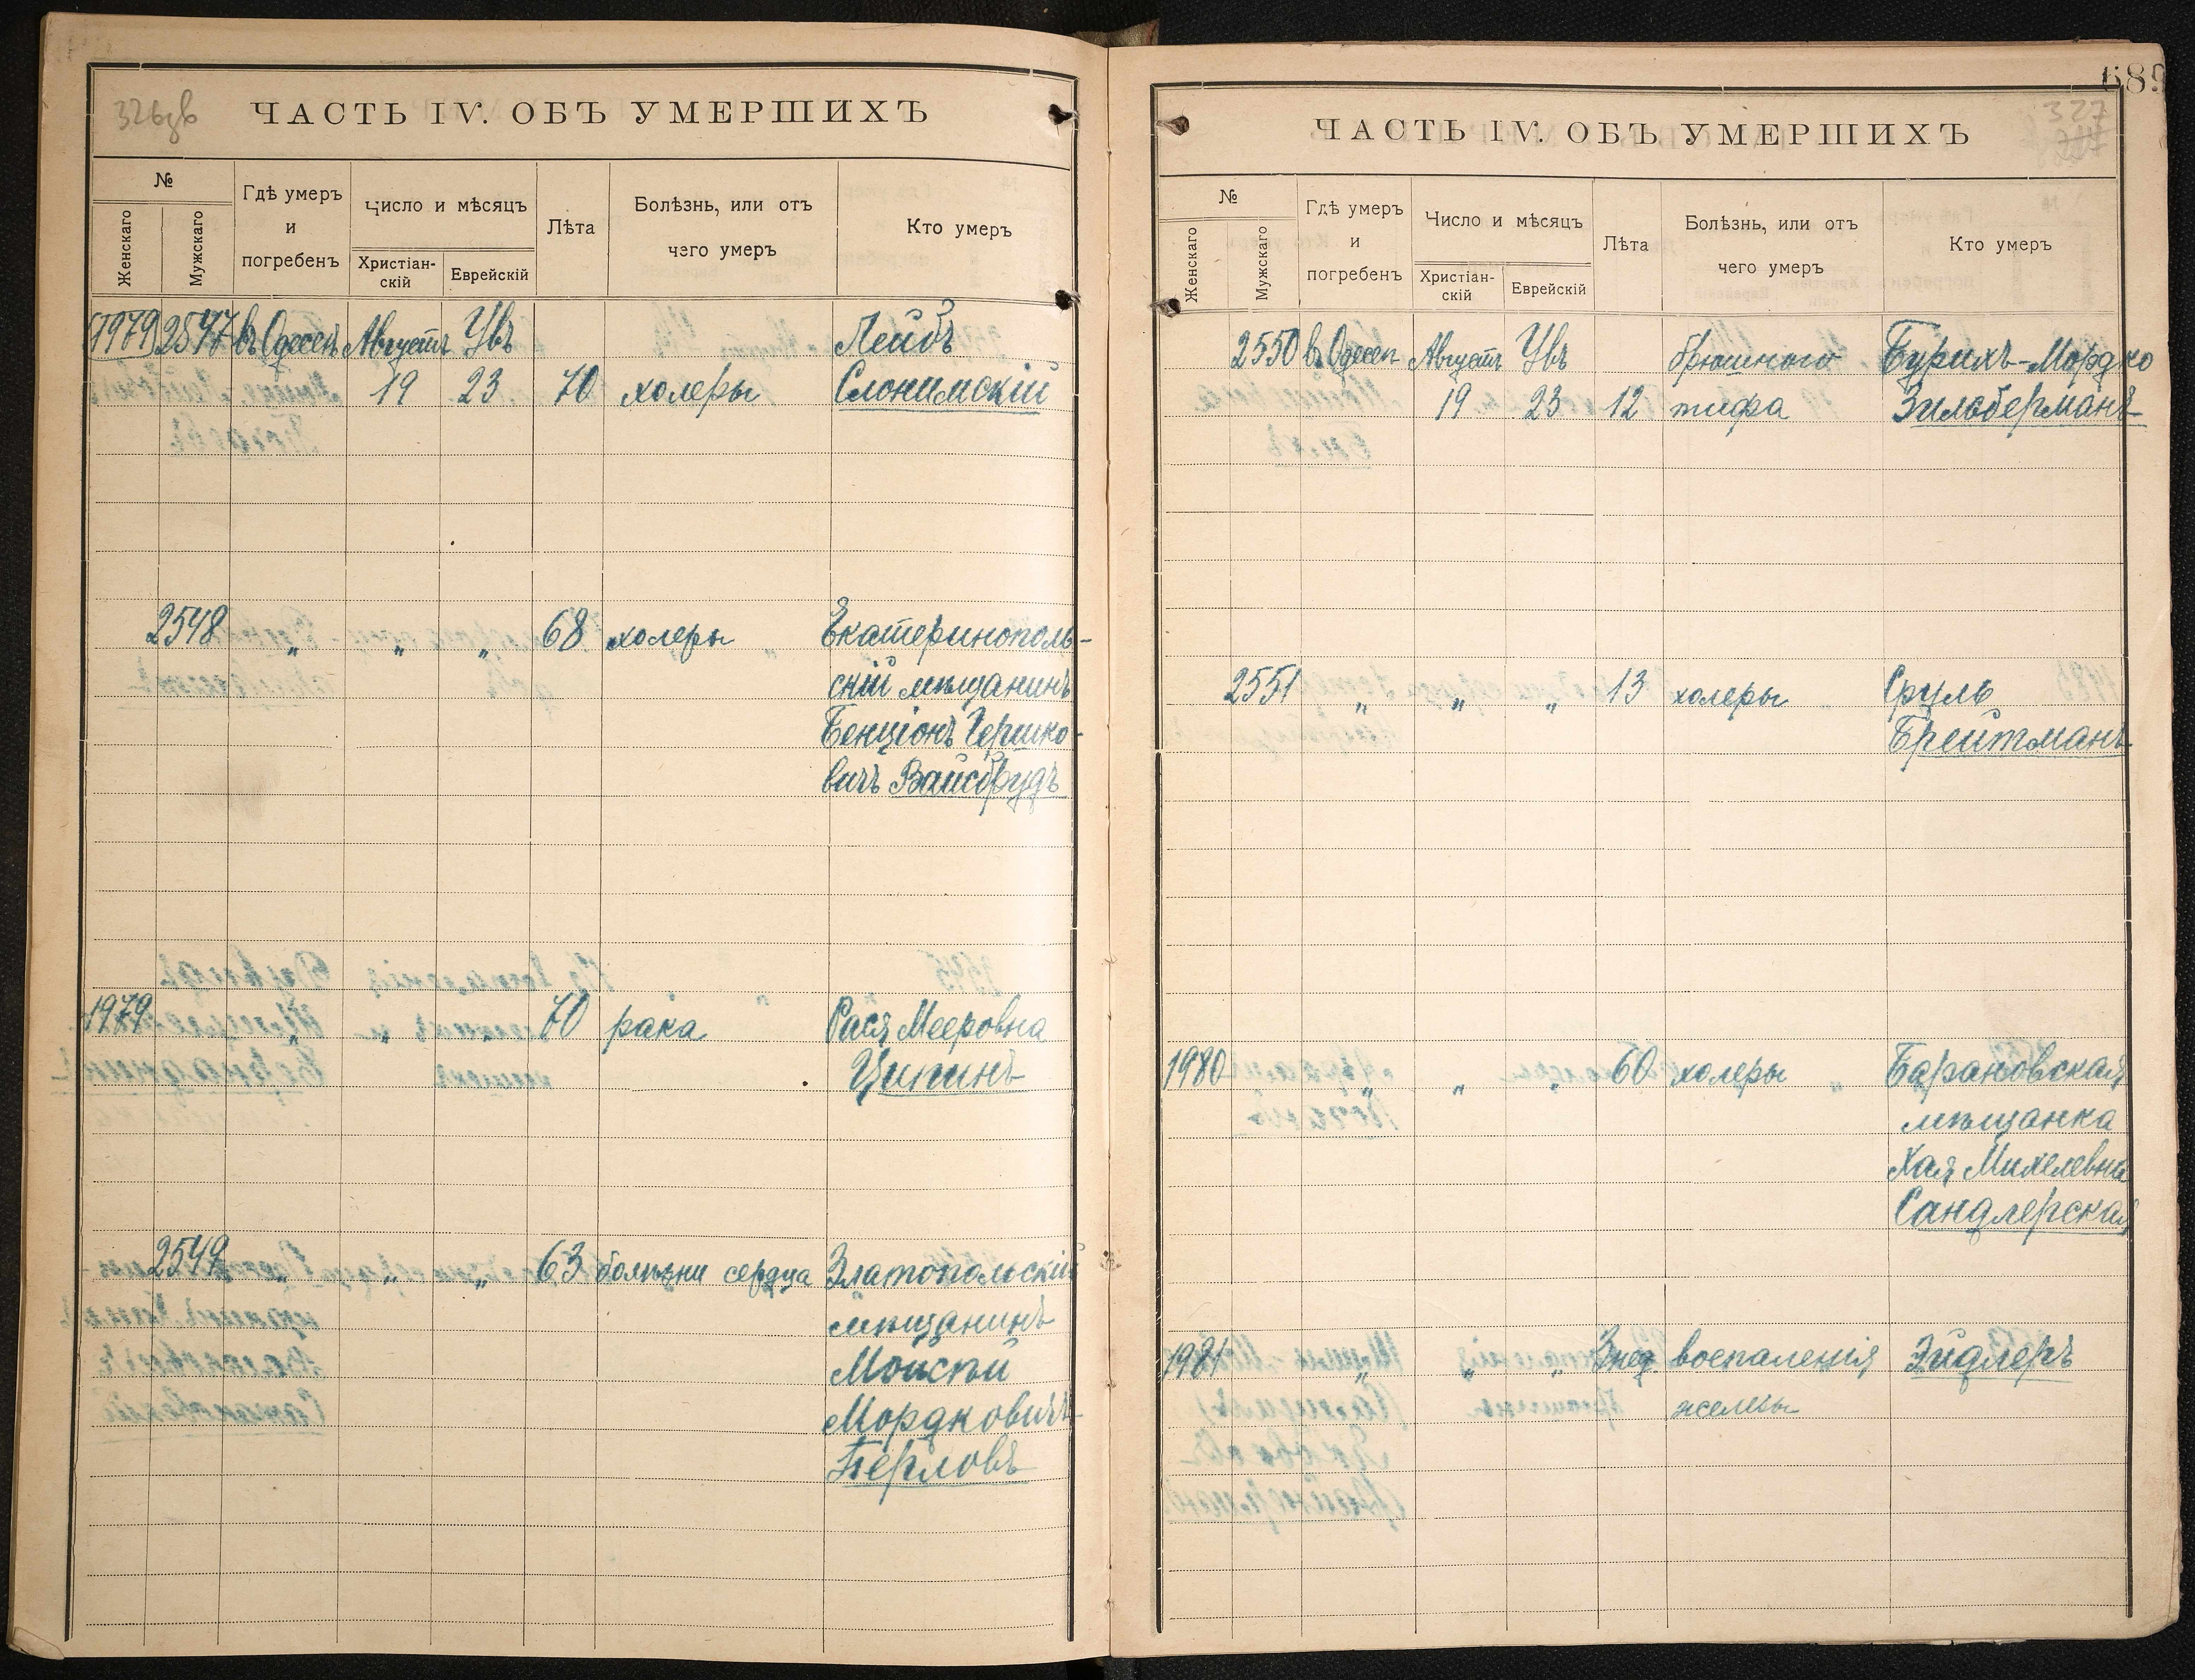 326 зв
ЧАСТЬ IV. ОБЪ УМЕРШИХЪ
№
Женскаго
Мужскаго
Гдѣ умеръ
и
погребенъ
Число и мѣсяцъ
Христіан-
скій
Еврейскій
Лѣта
Болѣзнь, или отъ
чего умеръ
Кто умеръ
1979 2547 въ Одессѣ Августъ Увъ Лейбъ
19 23 70 холеры Слонимскій
2548 „ „ „ 68 холеры Екатеринополь-
скій мѣщанинъ
Бенціонъ Гершко-
вичъ Вайсбрудъ
1979 „ „ „ 70 рака Рася Мееровна
Ципинъ
2549 „ „ „ 63 болѣзни сердца Златопольскій
мѣщанинъ
Моисѣй
Мордковичъ
Перловъ
689
327
ЧАСТЬ IV. ОБЪ УМЕРШИХЪ
№
Женскаго
Мужскаго
Гдѣ умеръ
и
погребенъ
Число и мѣсяцъ
Христіан-
скій
Еврейскій
Лѣта
Болѣзнь, или отъ
чего умеръ
Кто умеръ
2550 въ Одессѣ Августъ Увъ брюшного Бурихъ-Мордко
19 23 12 тифа Зильберманъ
2551 „ „ „ 13 холеры Сруль
Брейтманъ
1980 „ „ „ 60 холеры Барановская
мѣщанка
Хая Михелевна
Сандлерская
1981 „ „ „ 3 нед. воспаленія Эйдлеръ
железы